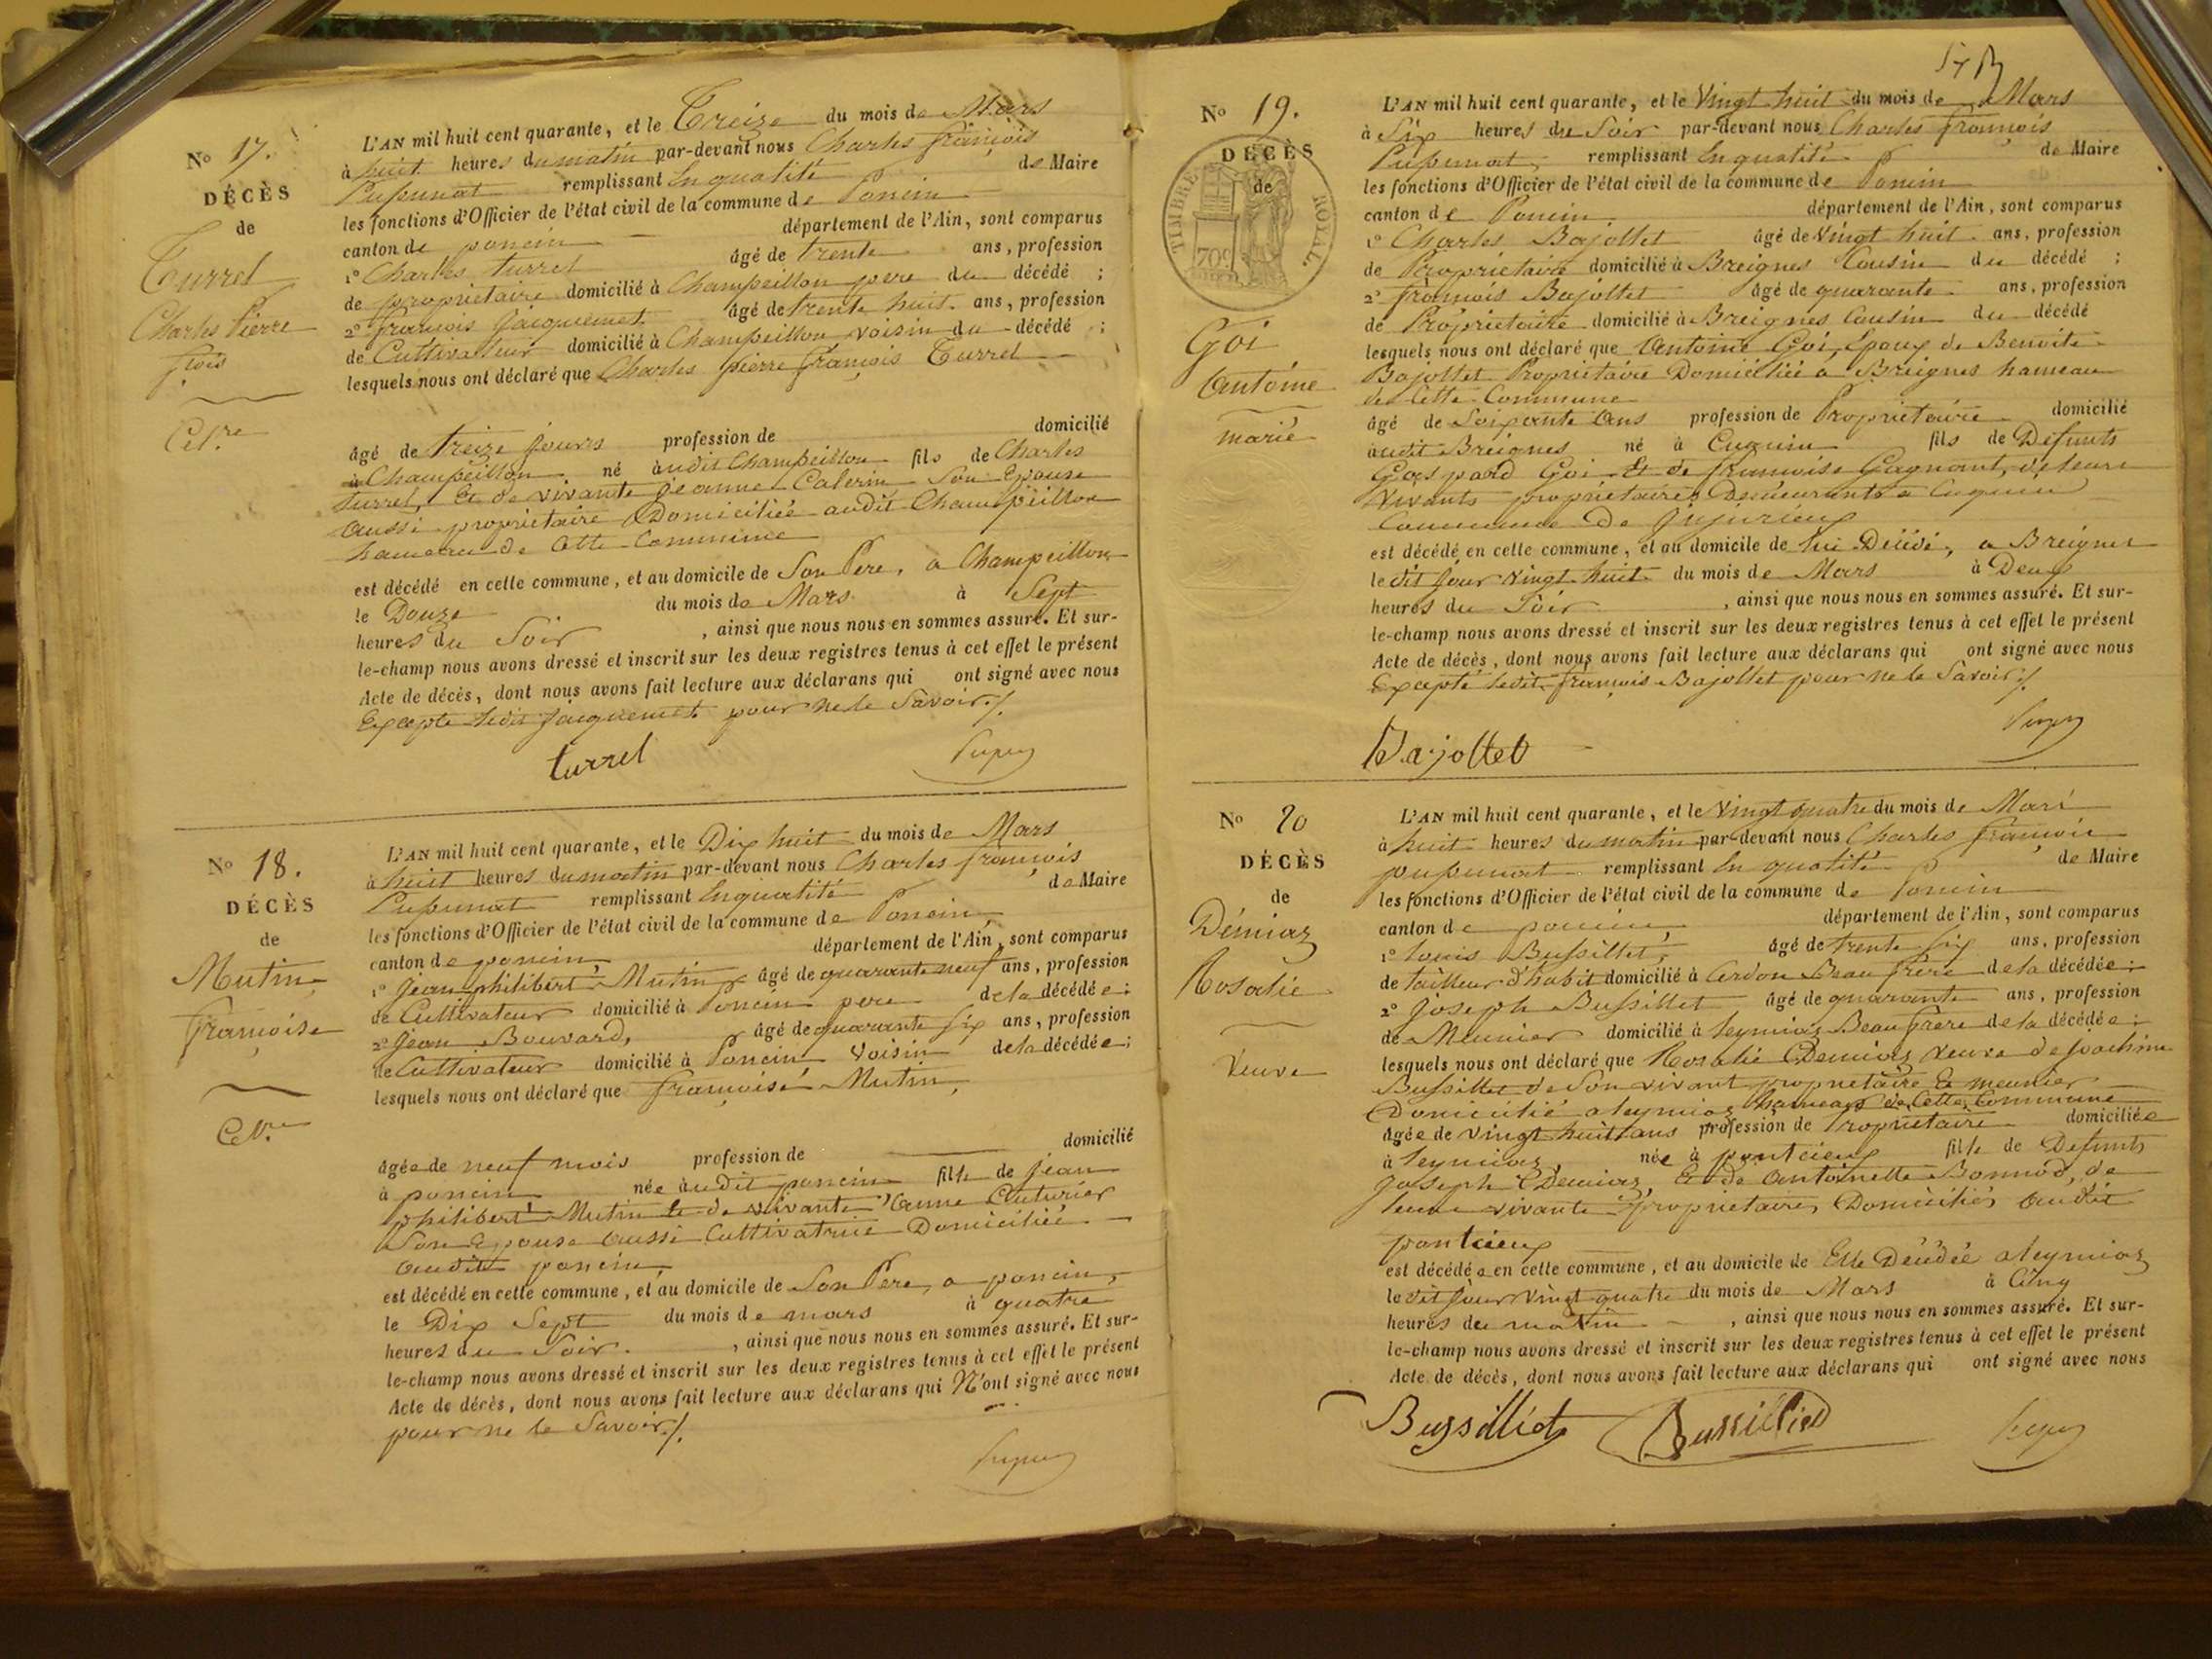 N° 17.
DÉCÈS
de
Turrel
Charles Pierre
frois
Cel.re
L'AN mil huit cent quarante, et le Treize du mois de Mars
à huit heures du matin par-devant nous Charles françois
Pupunat remplissant En qualité de Maire
les fonctions d'Officier de l'état civil de la commune de Poncin
canton de poncin département de l'Ain, sont comparus
1° Charles turrel âgé de trente ans, profession
de propriétaire domicilié à Champeillon pere du décédé ;
2° françois Jacquemet âgé de trente huit ans, profession
de Cultivateur domicilié à Champeillon voisin du décédé ;
lesquels nous ont déclaré que Charles pierre françois Turrel
âgé de treize jours profession de domicilié
à Champeillon né audit Champeillon fils de Charles
turrel, Et de vivante jeanne Calerin Son Epouse
aussi propriétaire Domiciliée audit Champeillon
hameau de Cette Commune
est décédé en cette commune, et au domicile de Son Pere, a Champeillon
le Douze du mois de Mars à Sept
heures du Soir , ainsi que nous nous en sommes assuré. Et sur-
le-champ nous avons dressé et inscrit sur les deux registres tenus à cet effet le présent
Acte de décès, dont nous avons fait lecture aux déclarans qui ont signé avec nous
Excepté ledit jacquemet pour ne le Savoir ./.
turrel
N° 18.
DÉCÈS
de
Mutin
françoise
L'AN mil huit cent quarante, et le Dix huit du mois de Mars
à huit heures du matin par-devant nous Charles françois
Pupunat remplissant En qualité de Maire
les fonctions d'Officier de l'état civil de la commune de Poncin
canton de poncin département de l'Ain, sont comparus
1° jean philibert Mutin âgé de quarante neuf ans, profession
de Cultivateur domicilié à Poncin pere de la décédée ;
2° Jean Bouvard, âgé de quarante six ans, profession
de Cultivateur domicilié à Poncin Voisin de la décédée ;
lesquels nous ont déclaré que françoise Mutin,
âgée de neuf mois profession de domicilié
à poncin née audit poncin fille de jean
philibert Mutin Et de vivante anne Couturier
Son Epouse aussi Cultivatrice Domiciliée
audit poncin,
est décédé en cette commune, et au domicile de Son Pere, a poncin,
le Dix Sept du mois de mars à quatre
heures du Soir. , ainsi que nous nous en sommes assuré. Et sur-
le-champ nous avons dressé et inscrit sur les deux registres tenus à cet effet le présent
Acte de décès, dont nous avons fait lecture aux déclarans qui N'ont signé avec nous
pour ne le Savoir ./.
N° 19.
DÉCÈS
de
TIMBRE ROYAL.
Goi
antoine
marié
L'AN mil huit cent quarante, et le Vingt huit du mois de Mars
à Six heures du Soir par-devant nous Charles françois
Pupunat remplissant En qualité de Maire
les fonctions d'Officier de l'état civil de la commune de Poncin
canton de Poncin, département de l'Ain, sont comparus
1° Charles Bajollet âgé de vingt huit ans, profession
de Propriétaire domicilié à Breignes Cousin du décédé ;
2° françois Bajollet âgé de quarante ans, profession
de Propriétaire domicilié à Breignes Cousin du décédé
lesquels nous ont déclaré que antoine Goi, Epoux de Benoite
Bajollet Propriétaire Domiciliée a Breignes hameau
de Cette Commune
âgé de Soixante ans profession de Propriétaire domicilié
audit Breignes né à Cuquin fils de Defunts
Gaspard Goi Et de françoise Gagnant, de leurs
Vivants propriétaires Demeurants a Cuquin
Commune De jujurieux
est décédé en cette commune, et au domicile de lui Décédé, a Breignes
le dit jour vingt huit du mois de Mars à Deux
heures du Soir , ainsi que nous nous en sommes assuré. Et sur-
le-champ nous avons dressé et inscrit sur les deux registres tenus à cet effet le présent
Acte de décès, dont nous avons fait lecture aux déclarans qui ont signé avec nous
Excepté ledit françois Bajollet pour ne le Savoir ./.
Bajollet
N° 20
DÉCÈS
de
Démiaz
Rosalie
Veuve
L'AN mil huit cent quarante, et le Vingt quatre du mois de Mars
à huit heures du matin par-devant nous Charles françois
pupunat remplissant En qualité de Maire
les fonctions d'Officier de l'état civil de la commune de Poncin
canton de poncin, département de l'Ain, sont comparus
1° louis Bussillet, âgé de trente six ans, profession
de tailleur d'habit domicilié à Cerdon Beau frère de la décédée ;
2° Joseph Bussillet âgé de quarante ans, profession
de Meunier domicilié à leymiaz Beau frère de la décédée ;
lesquels nous ont déclaré que Rosalie Demiaz veuve de joachim
Bussillet de Son vivant propriétaire Et meunier
Domicilié a leymiaz hameau de Cette Commune
âgée de vingt huit ans profession de Propriétaire domiciliée
à leymiaz, née à pontcieux fille de Defunts
joseph Demiaz, Et de antoinette Bonnod, de
leurs vivants propriétaires Domiciliés audit
pontcieux
est décédée en cette commune, et au domicile de Elle Décédée a leymiaz
le dit jour vingt quatre du mois de Mars à Cinq
heures du matin , ainsi que nous nous en sommes assuré. Et sur-
le-champ nous avons dressé et inscrit sur les deux registres tenus à cet effet le présent
Acte de décès, dont nous avons fait lecture aux déclarans qui ont signé avec nous
Bussilliet Bussilliet